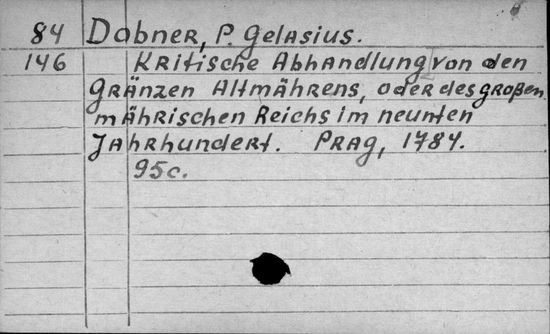 84 Dobner, P. Gelasius.
146 Kritische Abhandlung von den
Gränzen Altmährens, oder des großen
mährischen Reichs im neunten
Jahrhundert. Prag, 1784.
95c.